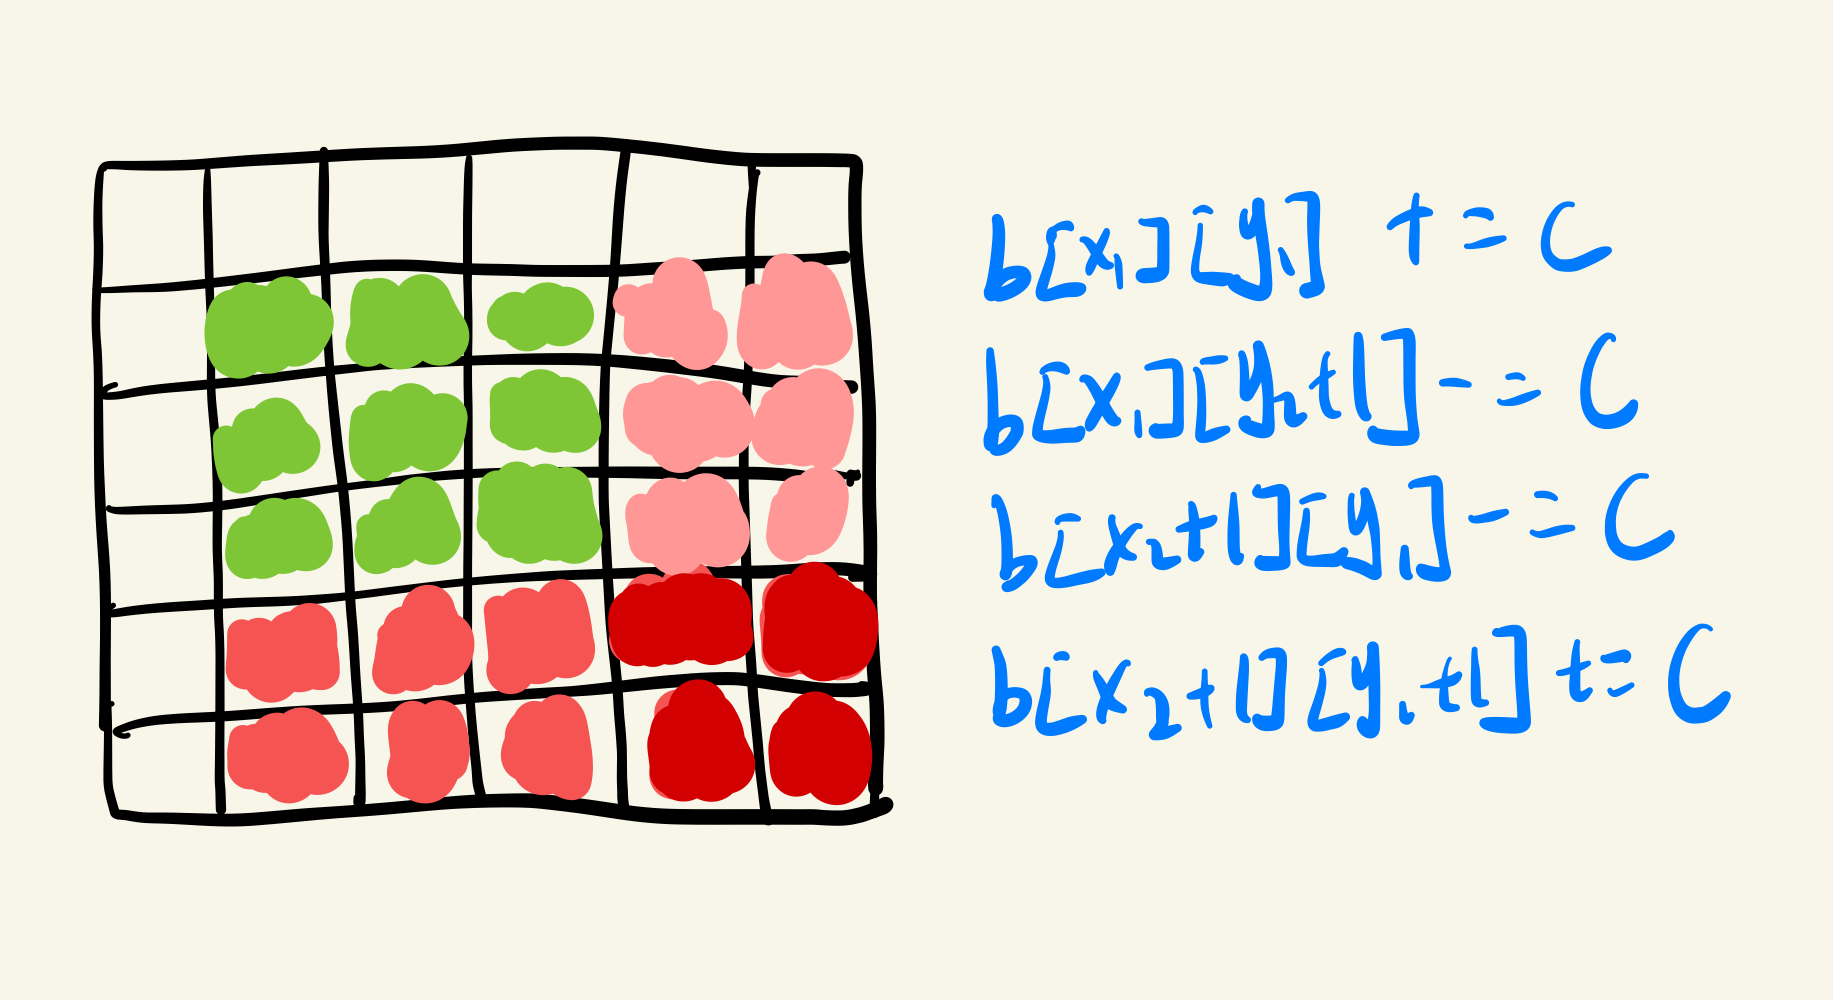 b[x₁][y₁] += c
b[x₁][y₂+1] -= c
b[x₂+1][y₁] -= c
b[x₂+1][y₁+1] += c